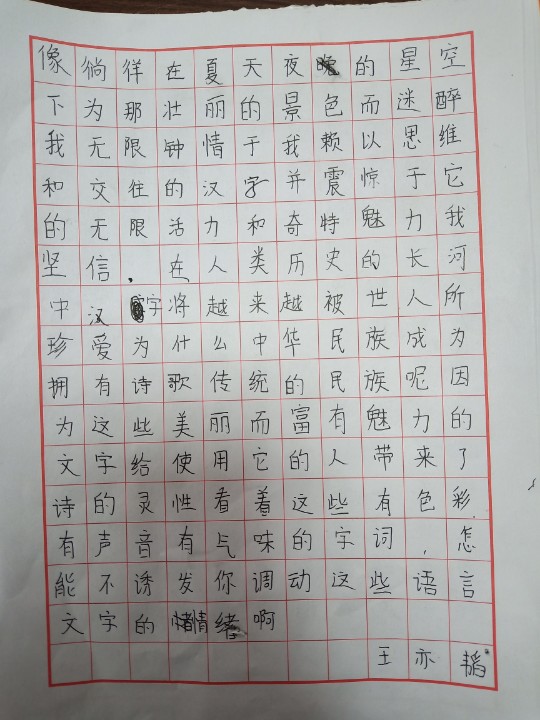 像徜徉在夏天夜晚的星空
下为那壮丽的景色而迷醉
我无限钟情于我赖以思维
和交往的汉字并震惊于它
的无限活力和奇特魅力我
坚信，在人类历史的长河
中汉字将越来越被世人所
珍爱为什么中华民族成为
拥有诗歌传统的民族呢因
为这些美丽而富有魅力的
文字给使用它的人带来了
诗的灵性看着这些有色彩
有声音有气味的字词，怎
能不诱发你调动这些语言
文字的情绪啊
王亦韬